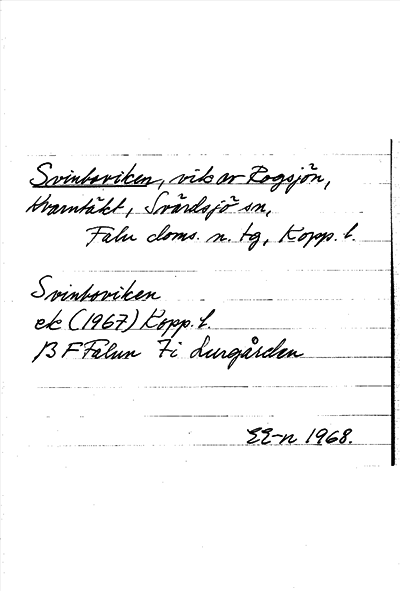 Svinboviken, vik av Rogsjön,
Kvarntäkt, Svärdsjö sn,
Falu doms. n. tg, Kopp. l.
Svinboviken
ek (1967) Kopp. l.
13 F Falun 7i Lurgården
EE-n 1968.